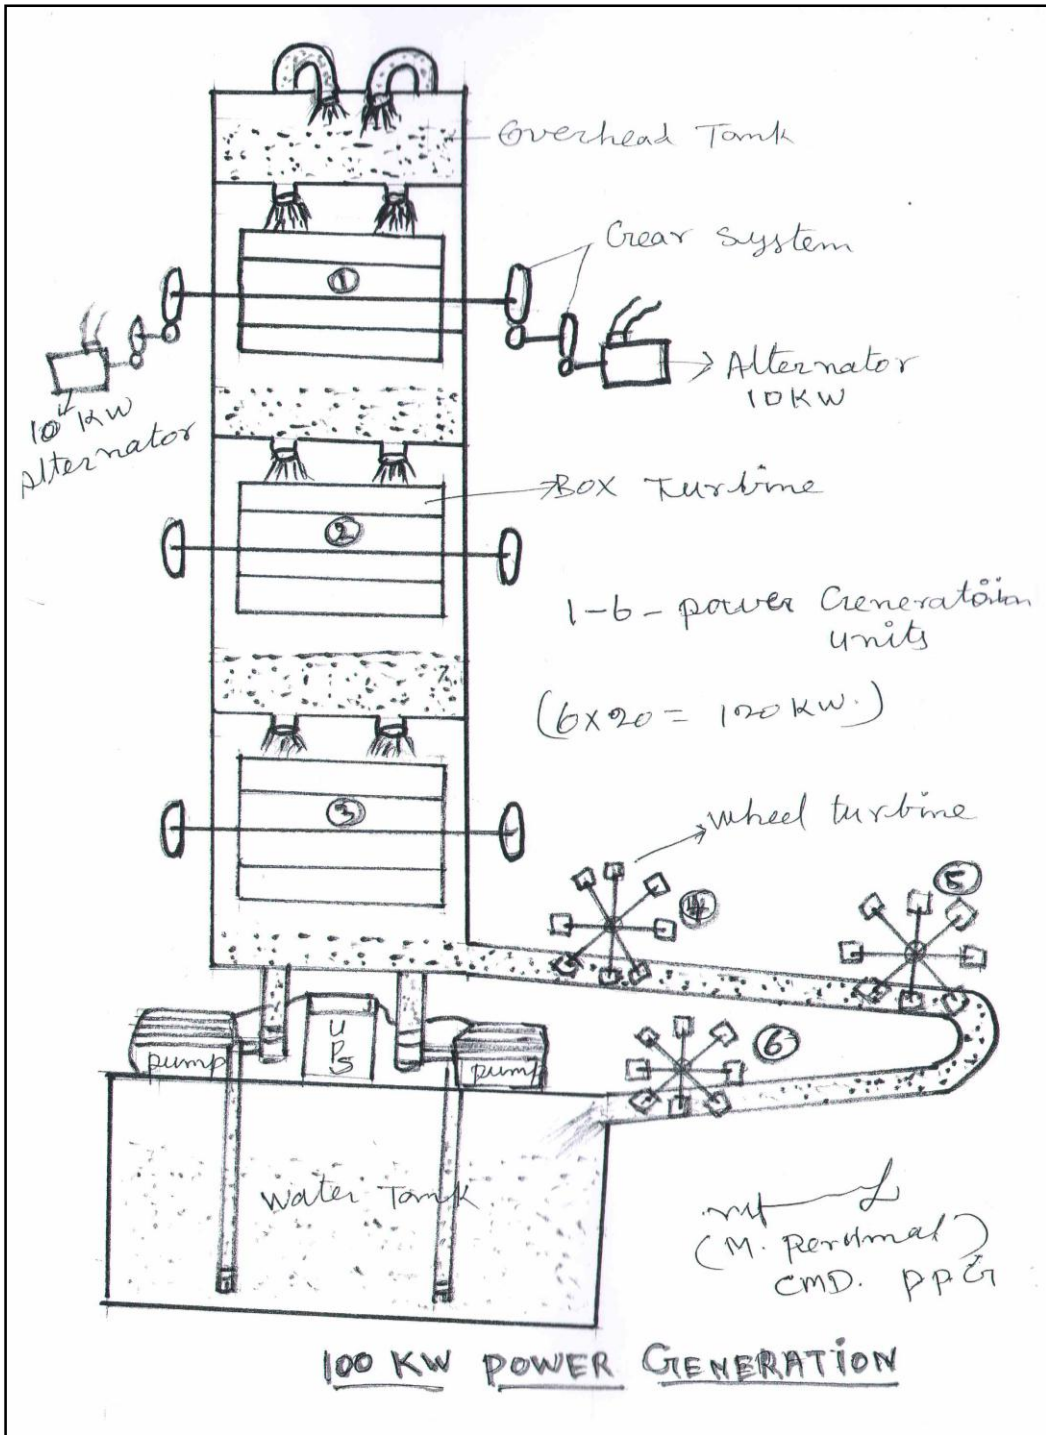 Overhead Tank
Gear system
①
Alternator
10KW
10 KW
Alternator
BOX Turbine
②
1-6- power Generation
units
(6x20 = 120 KW.)
③
wheel turbine
④
⑤
UPS
pump
pump
⑥
Water Tank
(M. Perumal)
CMD. PPG
100 KW POWER GENERATION